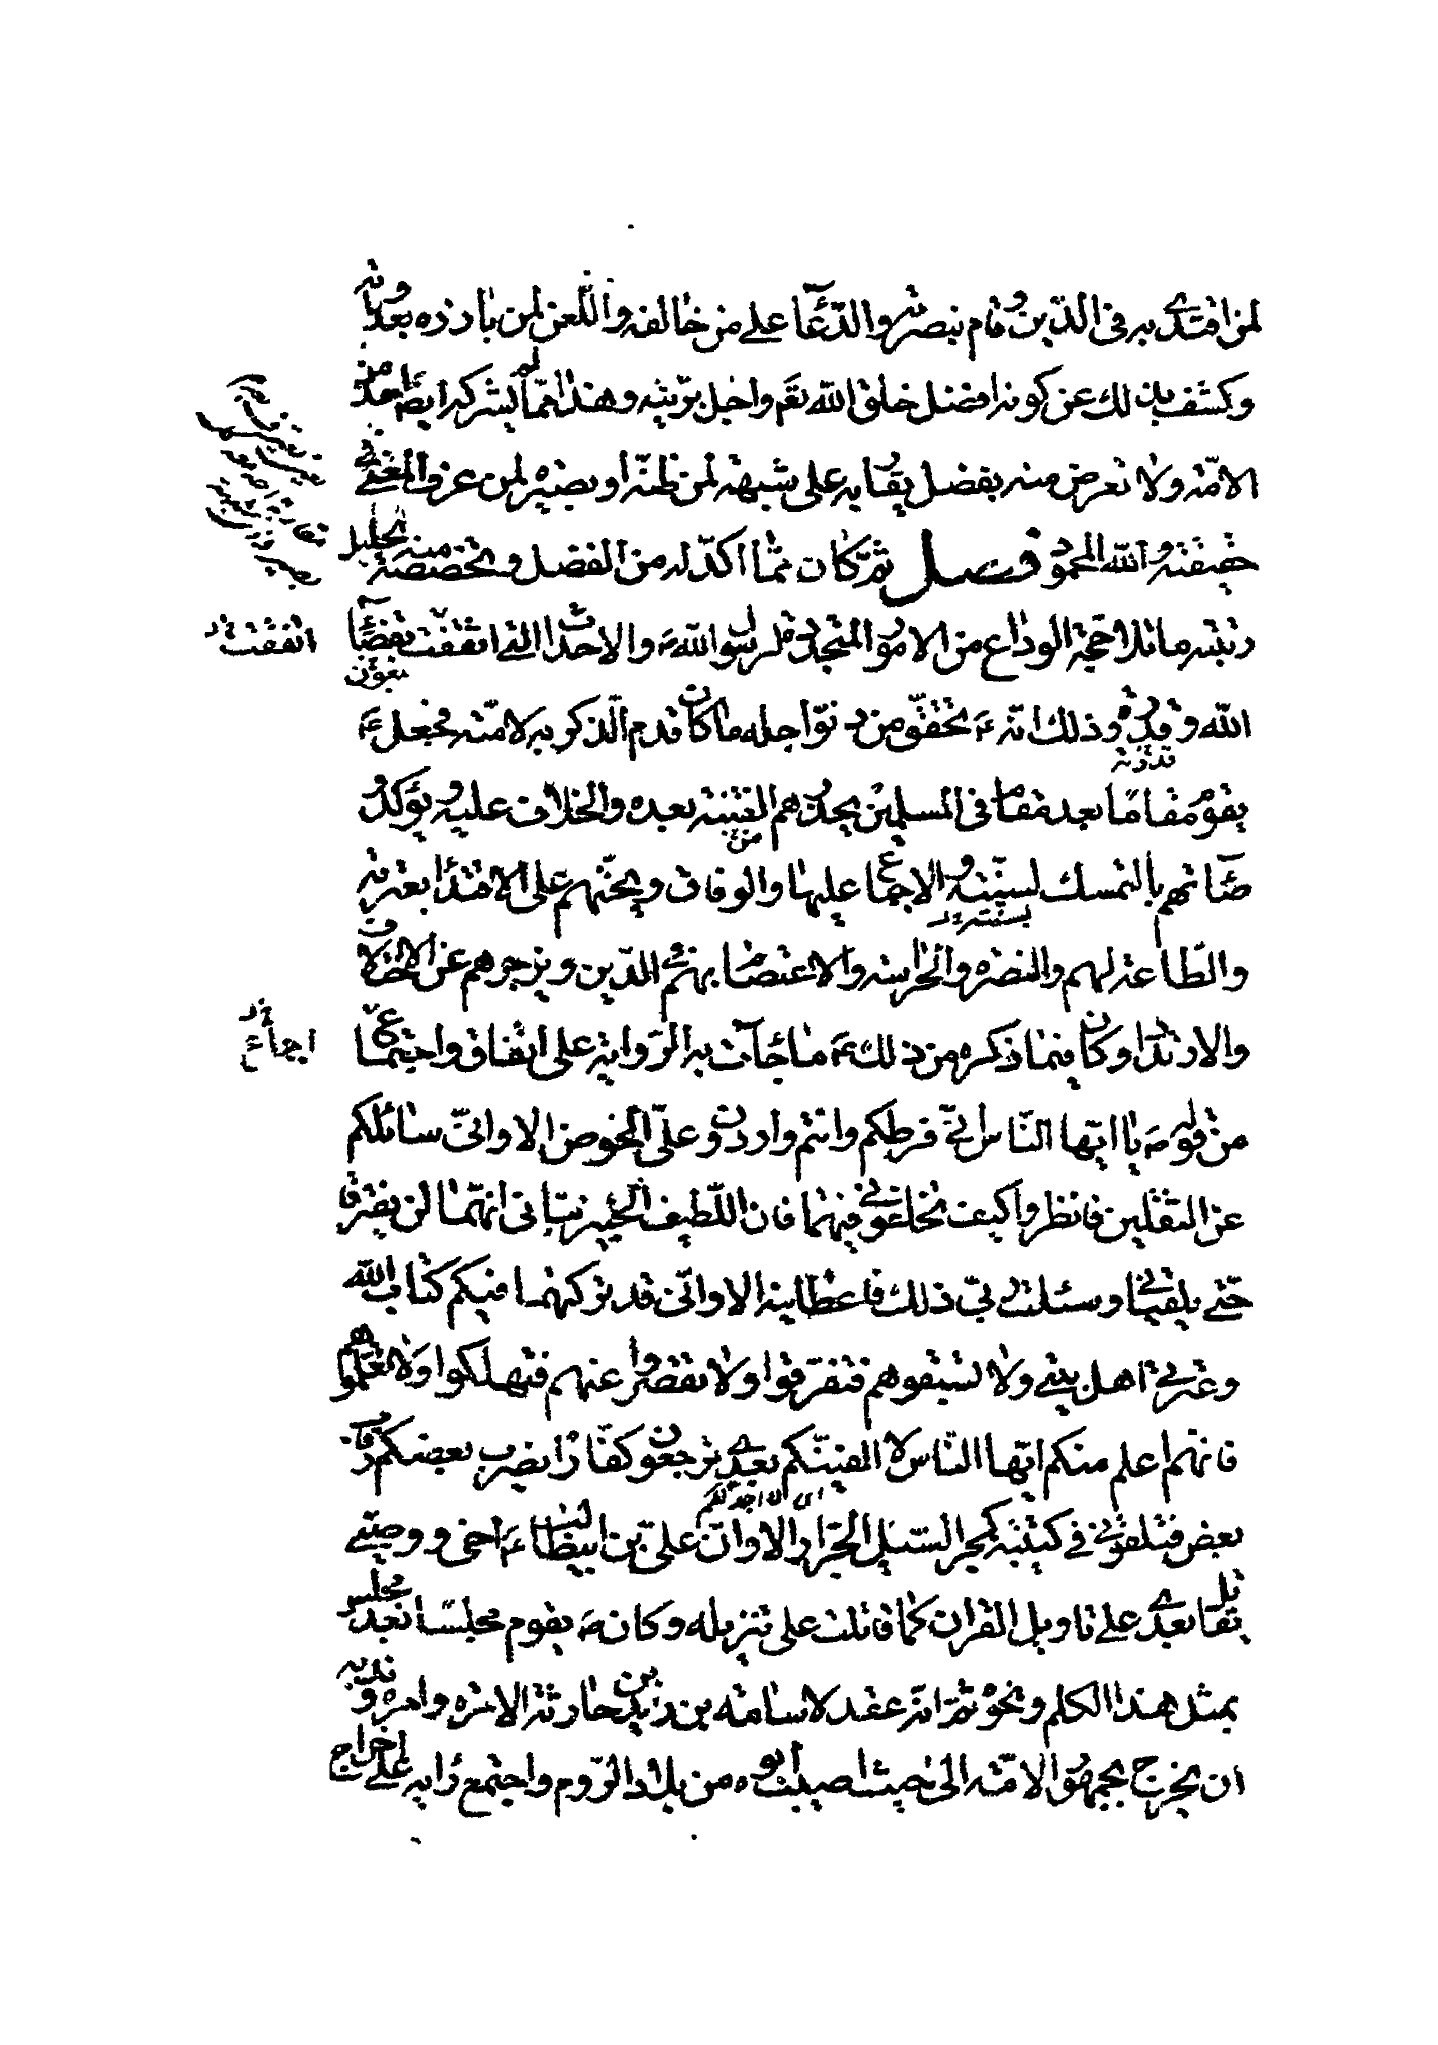 لمن اقتدى به في الدّين وقام بنصرته والدّعآء على من خالفه واللّعن لمن بارزه بعداوته
وكشف بذلك عن كونه افضل خلق الله تع واجل بريّته وهذا ممّا لم يشركه ايضا احد من
الامّة ولا تعرض منه بفضل يقاربه على شبهة لمن ظنّه او بصيرة لمن عرف المعنى في
حقيقته والله المحمود فصل ثمّ كان ممّا اكدّ له من الفضل وتخصصه منه بجليل
رتبته ما تلا حجّة الوداع من الامور المتجددة لرسول الله ص والاحداث التي اتفقت بقضآء
الله وقدره وذلك انّه ع تحقّق من دنوّ اجله ما كان قدم الّذكر به لامّته فجعل ع
يقوم مقاما بعد مقام في المسلمين يحذرهم الفتنة بعده والخلاف عليه ويؤكد و
صآتهم بالتمسك لسنّته والاجماع عليها والوفاق ويحثّهم على الاقتدا بعترته
والطّاعة لهم والنصرة والحراسة والاعتصام بهم في الدّين ويزجرهم عن الاختلاف
والارتداد وكان فيما ذكره من ذلك ع ما جآءت به الرّواية على اتفاق واجتماع
من قوله ص يا ايّها النّاس انّي فرطكم وانتم واردون علىّ الحوض الا وانّى سائلكم
عن الثقلين فانظروا كيف تخلفوني فيهما فان اللّطيف الخبير نبّاني انهّما لن يفترقا
حتّى يلقياني وسئلت ربّي ذلك فاعطانيه الا وانّى قد تركتهما فيكم كتاب الله
وعترتي اهل بيتي ولا تسبقوهم فتفرّقوا ولا تقصروا عنهم فتهلكوا ولا تعلّموهم
فانهم اعلم منكم ايّها النّاس لا الفينّكم بعدي ترجعون كفّارا يضرب بعضكم رقاب
بعض فتلقوني في كتيبة كمجر السّيل الجرّار الا وانّ علىّ بن ابيطالب ع اخى ووصيّي
يقاتل بعدي على تاويل القران كما قاتلت على تنزيله وكان ص يقوم مجلسا بعد مجلس
بمثل هذا الكلم ونحوه ثمّ انّه عقد لاسامة بن زيد بن حارثة الامرة وامره وندبه
ان يخرج بجمهور الامّة الى حيث اصيب ابوه من بلاد الرّوم واجتمع رايه على اخراج
اتفقت
نعوٓن
قدرته
بسنته
اجماع
اى لا اجدنكم